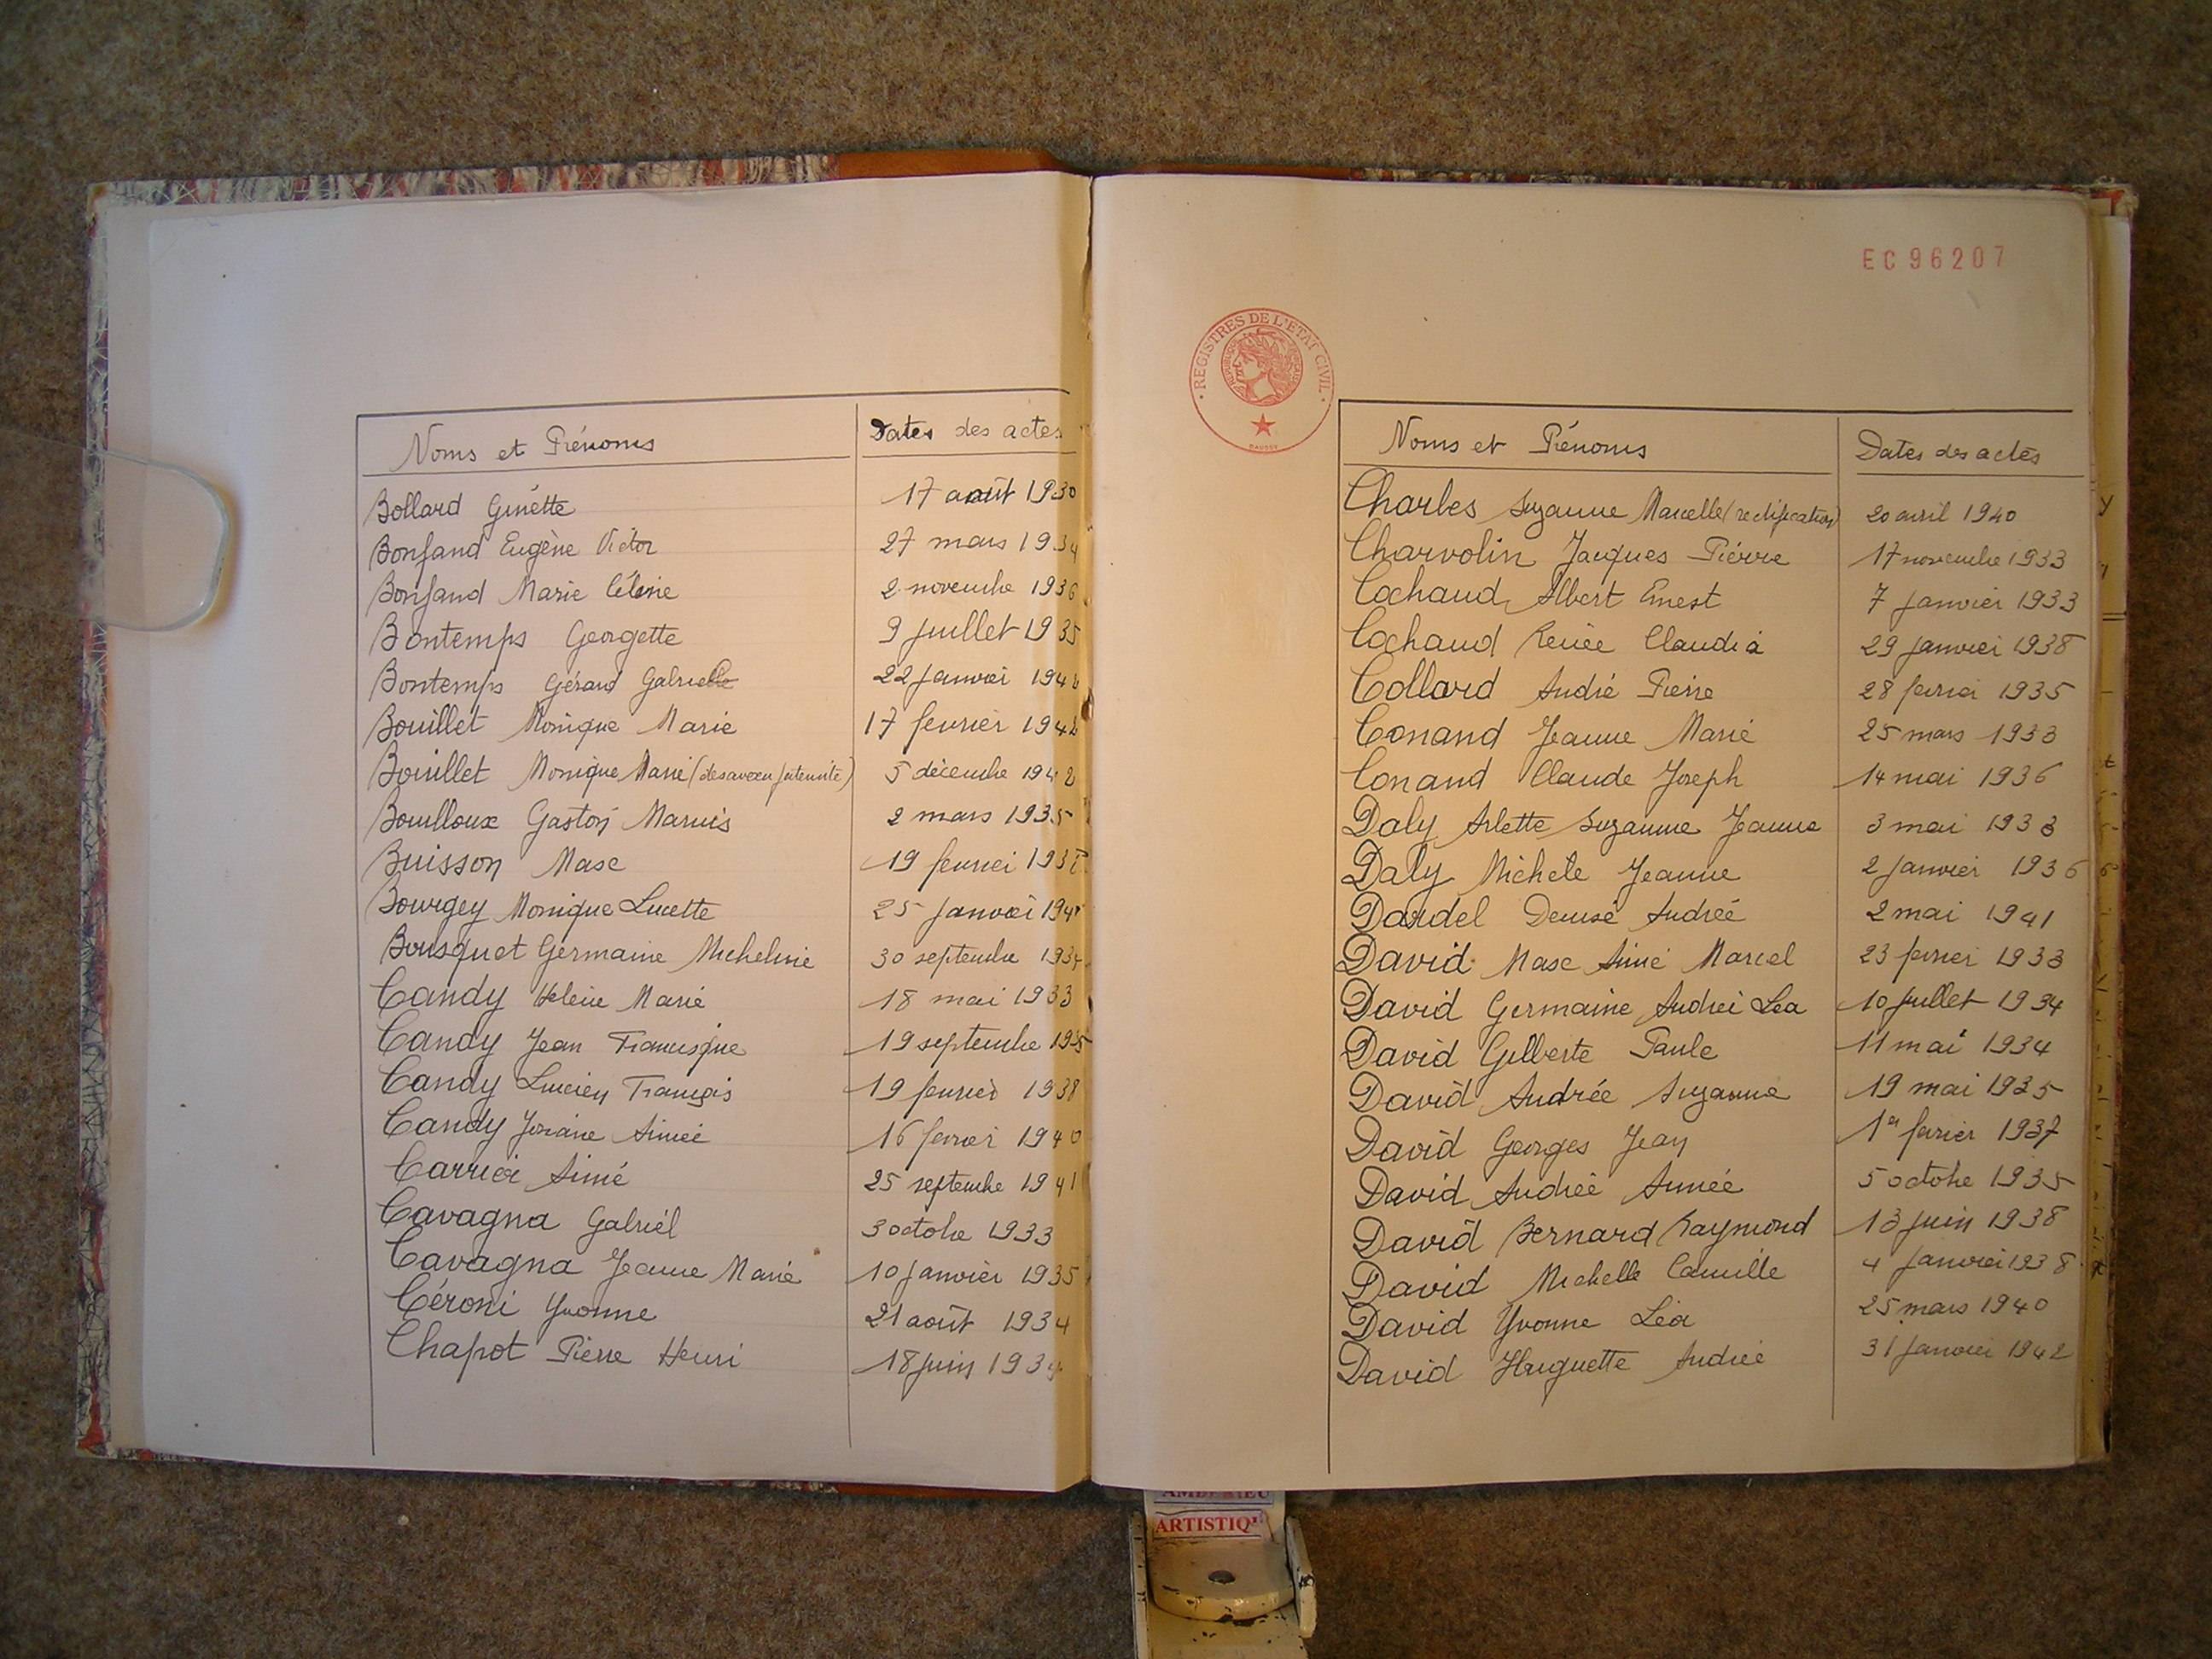 Noms et Prénoms Dates des actes
Bollard Ginette 17 août 1930
Bonfand Eugène Victor 27 mars 1934
Bonfand Marie Céline 2 novembre 1936
Bontemps Georgette 9 juillet 1935
Bontemps Gérard Gabrielle 22 janvier
Bouillet Monique Marie 17 fevrier 1942
Bouillet Monique Marie (desaveu paternité) 5 décembre 1942
Bouilloux Gaston Marius 2 mars 1935
Buisson Maxe 19 fevrier
Bourgey Monique Lucette 25 janvier
Bousquet Germaine Micheline 30 septembre
Candy Helène Marie 18 mai 1933
Candy Jean Francisque 19 septembre 1935
Candy Lucien François 19 fevrier 1938
Candy Josiane Aimée 16 fevrier 1940
Carrier Aimé 25 septembre 1941
Cavagna Gabriel 3 octobre 1933
Cavagna Jeanne Marie 10 janvier 1935
Céroni Yvonne 21 août 1934
Chapot Pierre Henri 18 juin
EC 96207
REGISTRES DE L'ETAT CIVIL
Noms et Prénoms Dates des actes
Charles Suzanne Marcelle (rectification) 20 avril 1940
Charvolin Jacques Pierre 17 novembre 1933
Cochaud Albert Ernest 7 janvier 1933
Cochaud Renée Claudia 29 janvier 1938
Collard André Pierre 28 fevrier 1935
Conand Jeanne Marie 25 mars 1933
Conand Claude Joseph 14 mai 1936
Daly Arlette Suzanne Jeanne 3 mai 1933
Daly Michele Jeanne 2 janvier 1936
Dardel Denise Andrée 2 mai 1941
David Maxe Aimé Marcel 23 fevrier 1933
David Germaine Andrée Léa 10 juillet 1934
David Gilberte Paule 11 mai 1934
David Andrée Suzanne 19 mai 1935
David Georges Jean 1er fevrier 1937
David Andrée Aimée 5 octobre 1935
David Bernard Raymond 13 juin 1938
David Michelle Camille 4 janvier 1938
David Yvonne Léa 25 mars 1940
David Huguette Andrée 31 janvier 1942
ARTISTIQ